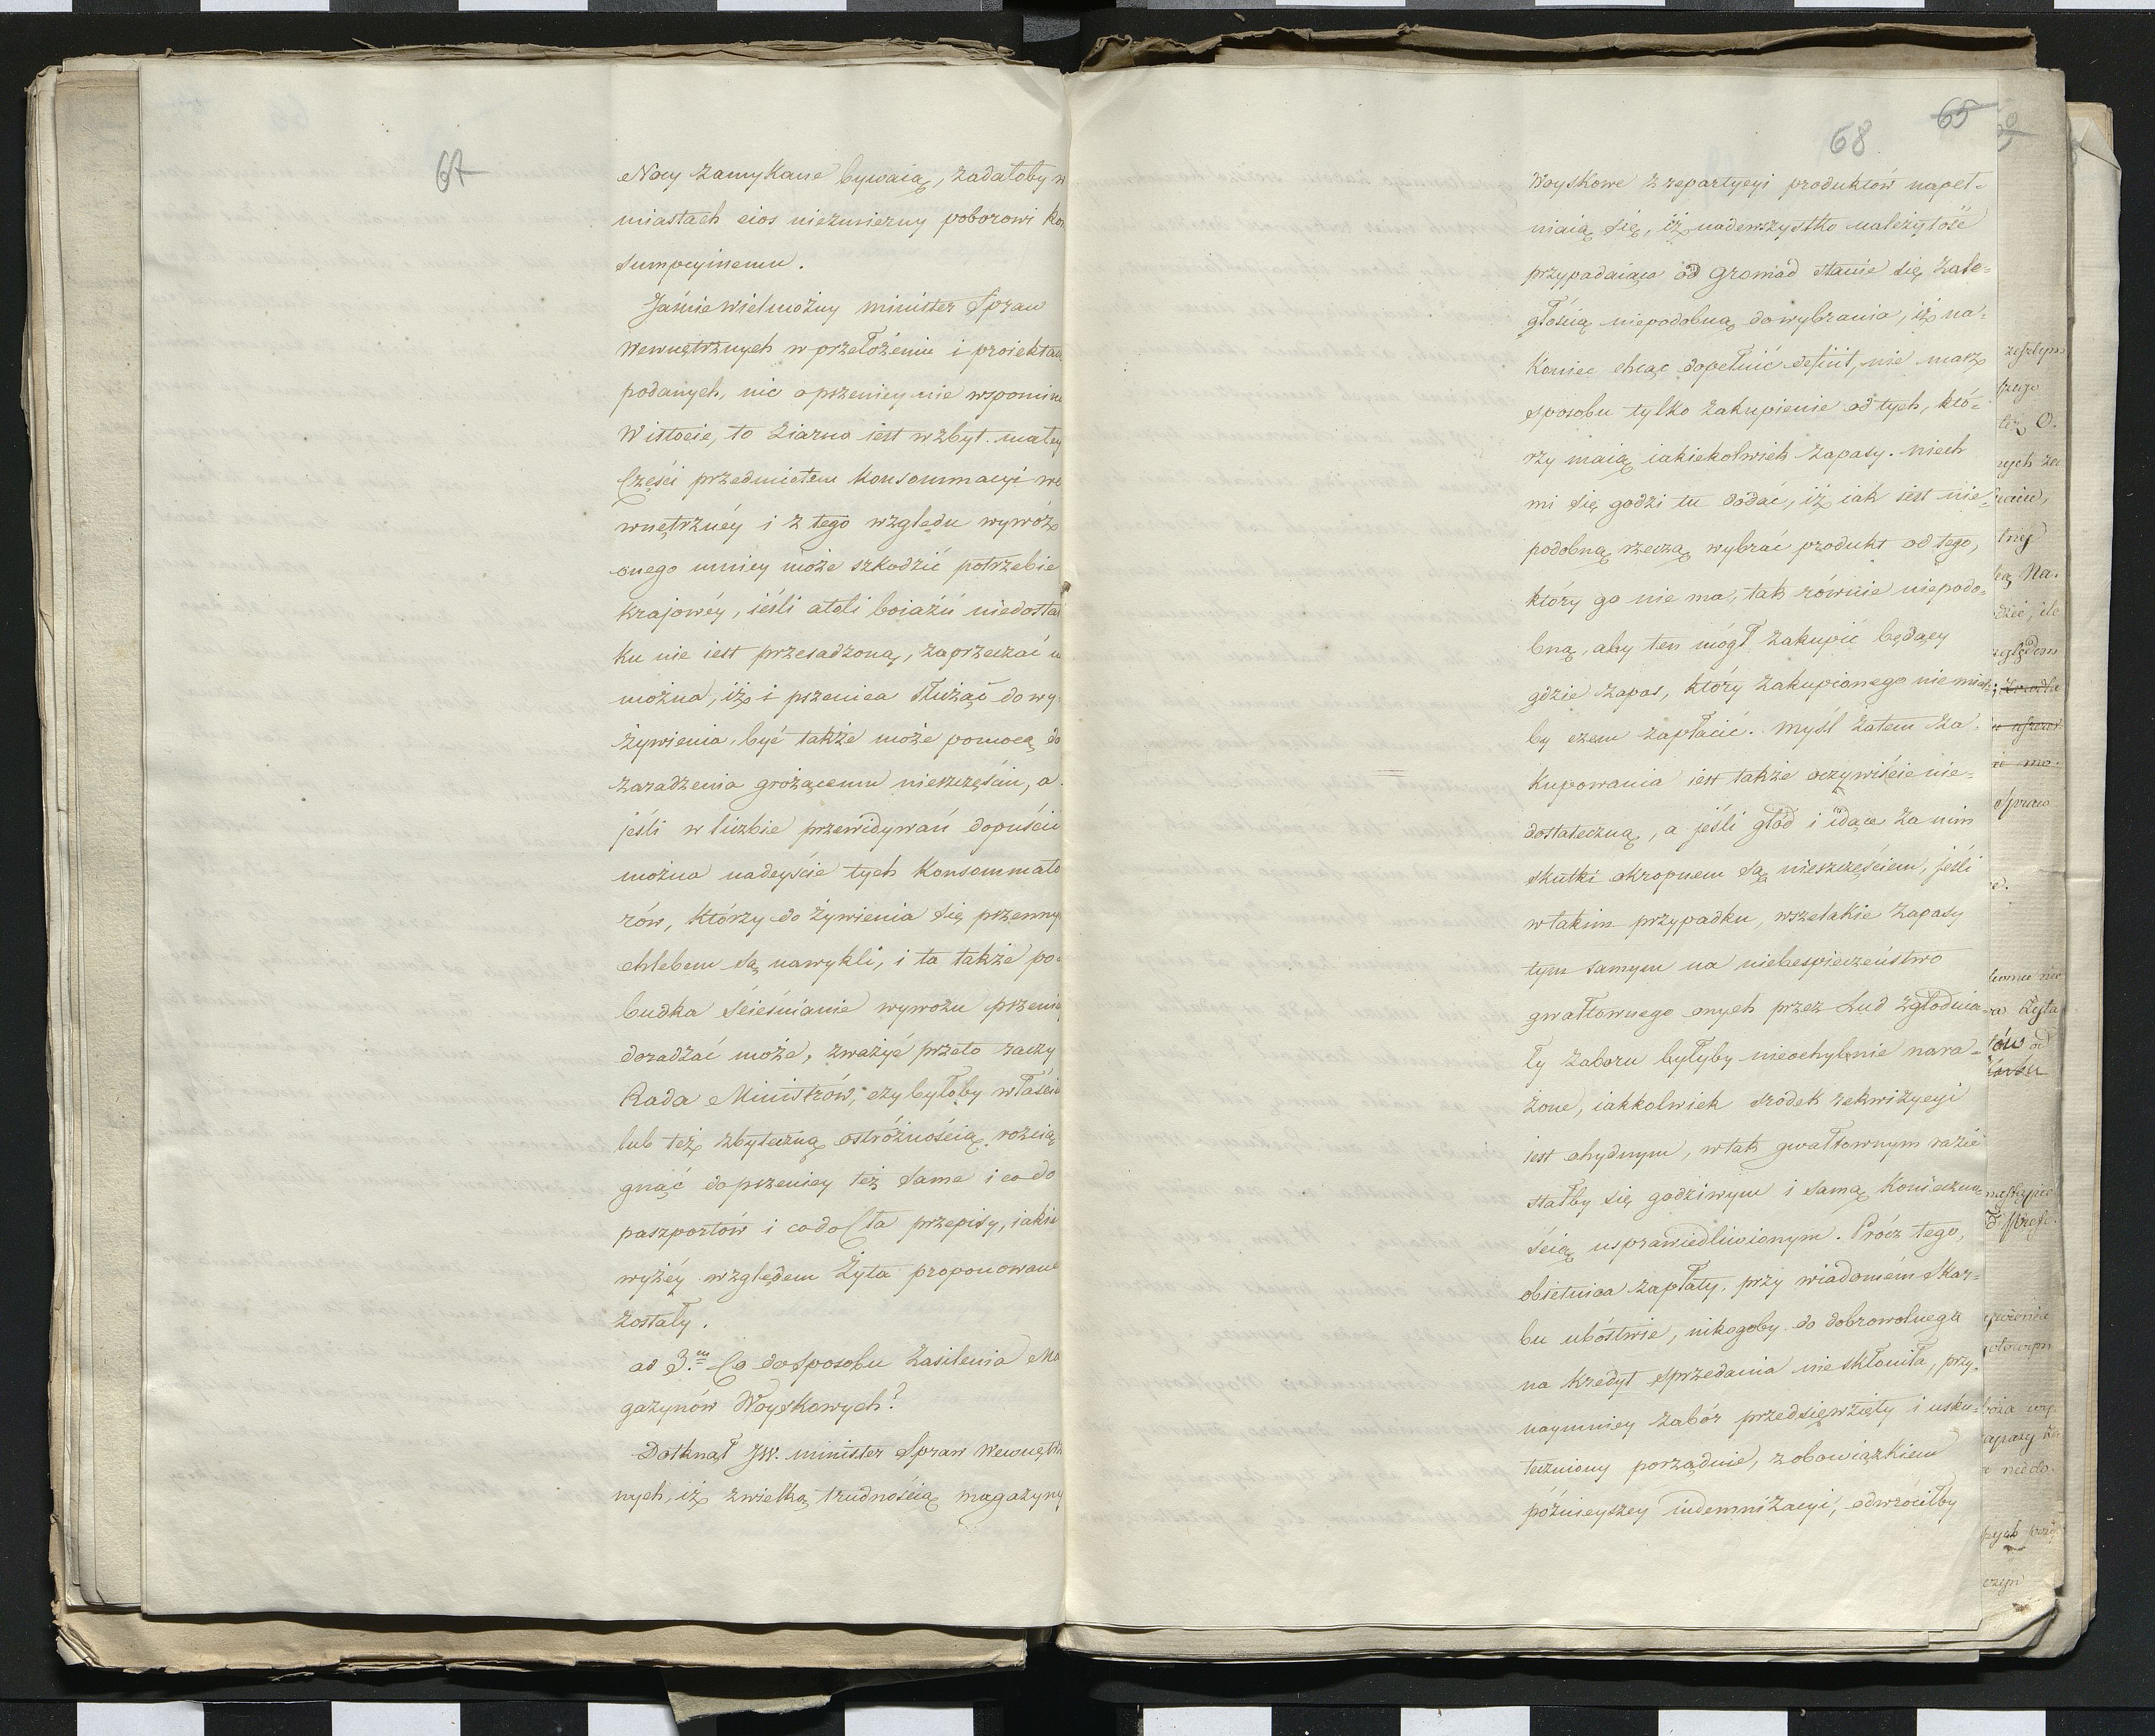 67
Nocy zamykane bywaią, zadałoby w
miastach cios niezmierny poborowi kon
sumpcyinemu.
Jaśnie Wielmożny Minister Spraw
Wewnętrznych w przełożeniu i proiektach
podanych, nic o pszenicy nie wspomina
W istocie, to ziarno iest w zbyt małey
Części przedmiotem Konsommacyi we
wnętrznéy i z tego względu wywóz
onego mniey może szkodzić potrzebie
krajowéy, iéśli atoli boiaźń niedostat
ku nie iest przesadzoną, zaprzeczać n
można, iż i pszenica służąc do wy-
żywienia, być także może pomocą do
zaradzenia grożącemu nieszczęściu, a
jeśli w liczbie przewidywań dopuścić
można nadeyście tych Konsommato
rów, którzy do żywienia się pszenny
chlebem są nawykli, i ta także po-
budka ścieśnianie wywozu pszenicy
doradzać może, zważyć przeto raczy
Rada Ministrów, czy byłoby właści
lub też zbyteczną ostróżnością, rozcią
gnąć do pszenicy też same i co do
paszportów i co do Cła przepisy, iakie
wyżéy względem Żyta proponowane
zostały.
ad 3.m Co do sposobu Zasilenia Ma
gazynów Woyskowych?
Dotknął JW. Minister Spraw Wewnętrz
nych, iż z wielką trudnością magazyny
65
68
Woyskowe z repartycyi produktów napeł-
niaią się, iż nadewszystko należytość
przypadaiąca od gromad stanie się zale-
głością niepodobną do wybrania, iż na-
koniec chcąc dopełnić deficit, nie masz
sposobu tylko zakupienie od tych, któ-
rzy maią iakiekolwiek zapasy. niech
mi się godzi tu dodać, iż iak iest nie-
podobną rzeczą wybrać produkt od tego,
który go nie ma, tak równie niepodo-
bną, aby ten mógł zakupić będący
gdzie zapas, który zakupionego nie miał-
by czem zapłacić. Myśl zatem za-
kupowania iest także oczywiście nie-
dostateczną, a jeśli głód i idące za nim
skutki okropnem są nieszczęściem, jeśli
w takim przypadku, wszelakie zapasy
tym samym na niebespieczeństwo
gwałtownego onych przez Lud zgłodnia-
ły zaboru byłyby nieochybnie nara-
żone, iakkolwiek srodek rekwizycyi
iest ohydnym, w tak gwałtownym razie
stałby się godziwym i samą konieczno-
ścią usprawiedliwionym. Prócz tego,
obietnica zapłaty, przy wiadomém Skar-
bu ubóstwie, nikogoby do dobrowolnego
na kredyt sprzedania nie skłoniła, przy-
naymniey zabór przedsięwzięty i usku-
teczniony porządnie, z obowiązkiem
późnieyszey indemnizacyi, odwróciłby